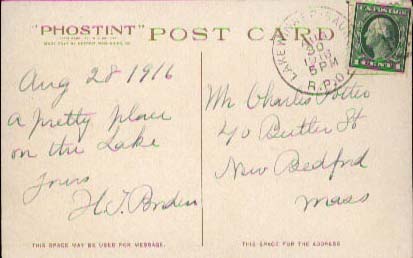 "PHOSTINT" POST CARD
Aug 28 1916
A pretty place
on the Lake
Yours
H.T. Borden
Mr Charles Potter
40 Butler St
New Bedford
Mass
LAKE WINNE
30
5 PM
R.P.O.
1 CENT 1
THIS SPACE MAY BE USED FOR MESSAGE.
THIS SPACE FOR THE ADDRESS